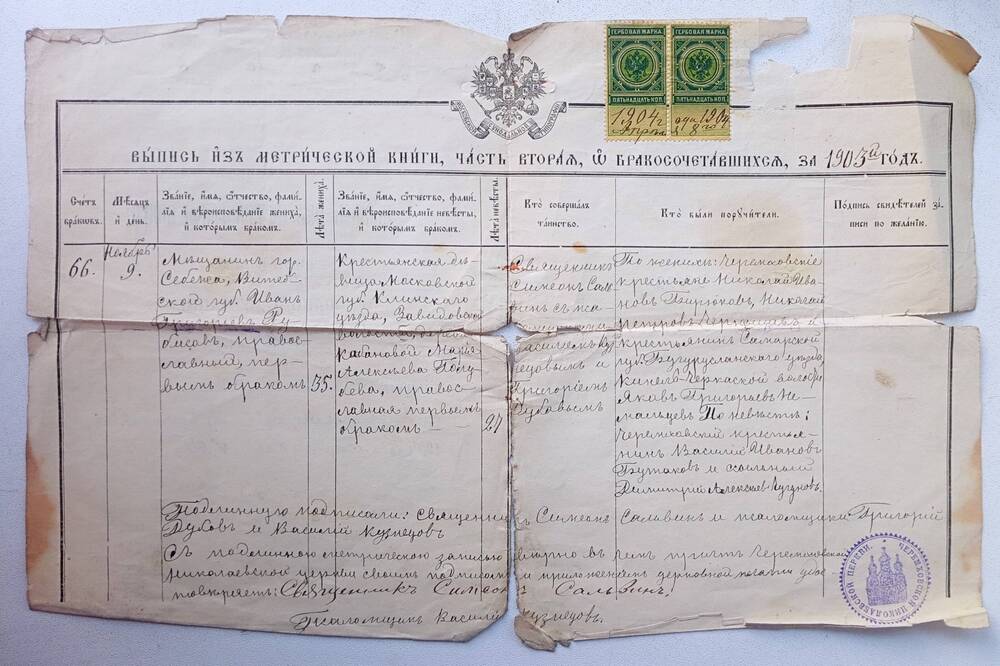 ГЕРБОВАЯ МАРКА ГЕРБОВАЯ МАРКА
ПЯТЬНАДЦАТЬ КОП. ПЯТЬНАДЦАТЬ КОП.
1904 г. года 1904
СѴНОДАЛЬНОЙ
ВЫПИСЬ ИЗЪ МЕТРИЧЕСКОЙ КНИГИ, ЧАСТЬ ВТОРАЯ, Ѿ БРАКОСОЧЕТАВШИХСЯ, ЗА 1903й ГОДЪ.
Счетъ
браковъ.
Мѣсяцъ
и день.
Званіе, имя, ѿчество, фами-
лія и вѣроисповѣданіе жениха,
и которымъ бракомъ.
Лѣта жениха.
Званіе, имя, ѿчество, фами-
лія и вѣроисповѣданіе невѣсты,
и которымъ бракомъ.
Лѣта невѣсты.
Кто совершалъ
таинство.
Кто были поручители.
Подпись свидѣтелей за-
писи по желанію.
66.
Ноябрь
9.
Мѣщанинъ гор.
Себежа, Витеб-
ской губ. Иванъ
Григорьевъ Ру-
бисовъ, правос-
лавный, пер-
вымъ бракомъ
35.
Крестьянская дѣ-
вица Московской
губ. Клинскаго
уѣзда, Завидовской
волости, дерев.
Кабановой Марія
Алексѣева Голу-
бева, правос-
лавная первымъ
бракомъ
27
Священникъ
Симеонъ Саль-
винъ съ пса-
ломщиками
Василіемъ Куз-
нецовымъ и
Григоріемъ
Дубовымъ
По женихѣ: Черемховскіе
крестьяне Николай Ива-
новъ Бирюковъ, Николай
Петровъ и
крестьянинъ Самарской
губ. Бугурусланскаго уѣзда
Кинель-Черкаской волости
Яковъ Григорьевъ Не-
мальцевъ По невѣстѣ:
Черемховскій крестья-
нинъ Василій Ивановъ
Бутаковъ и ссыльный
Димитрій Алексѣевъ
Подлинную подписали: Священникъ Симеонъ Сальвинъ и псаломщики Григорій
Дубовъ и Василій Кузнецовъ
Съ подлинною метрическою записью вѣрно въ чемъ причтъ Черемховской
Николаевской церкви своимъ подписомъ и приложеніемъ церковной печати удос-
товѣряетъ: Священникъ Симеонъ Сальвинъ
Псаломщикъ Василій Кузнецовъ.
ЧЕРЕМХОВСКОЙ НИКОЛАЕВСКОЙ ЦЕРКВИ.